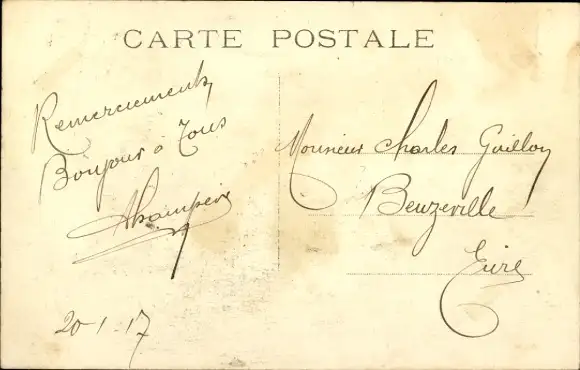 CARTE POSTALE
Remerciements
Bonjour à Tous
20-1-17
Monsieur Charles Guillou
Beuzeville
Eure